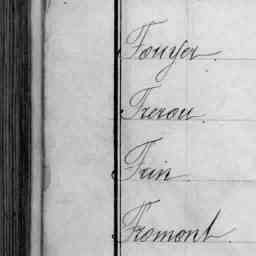 Fouyer.
Frerou.
Frin.
Fromont.